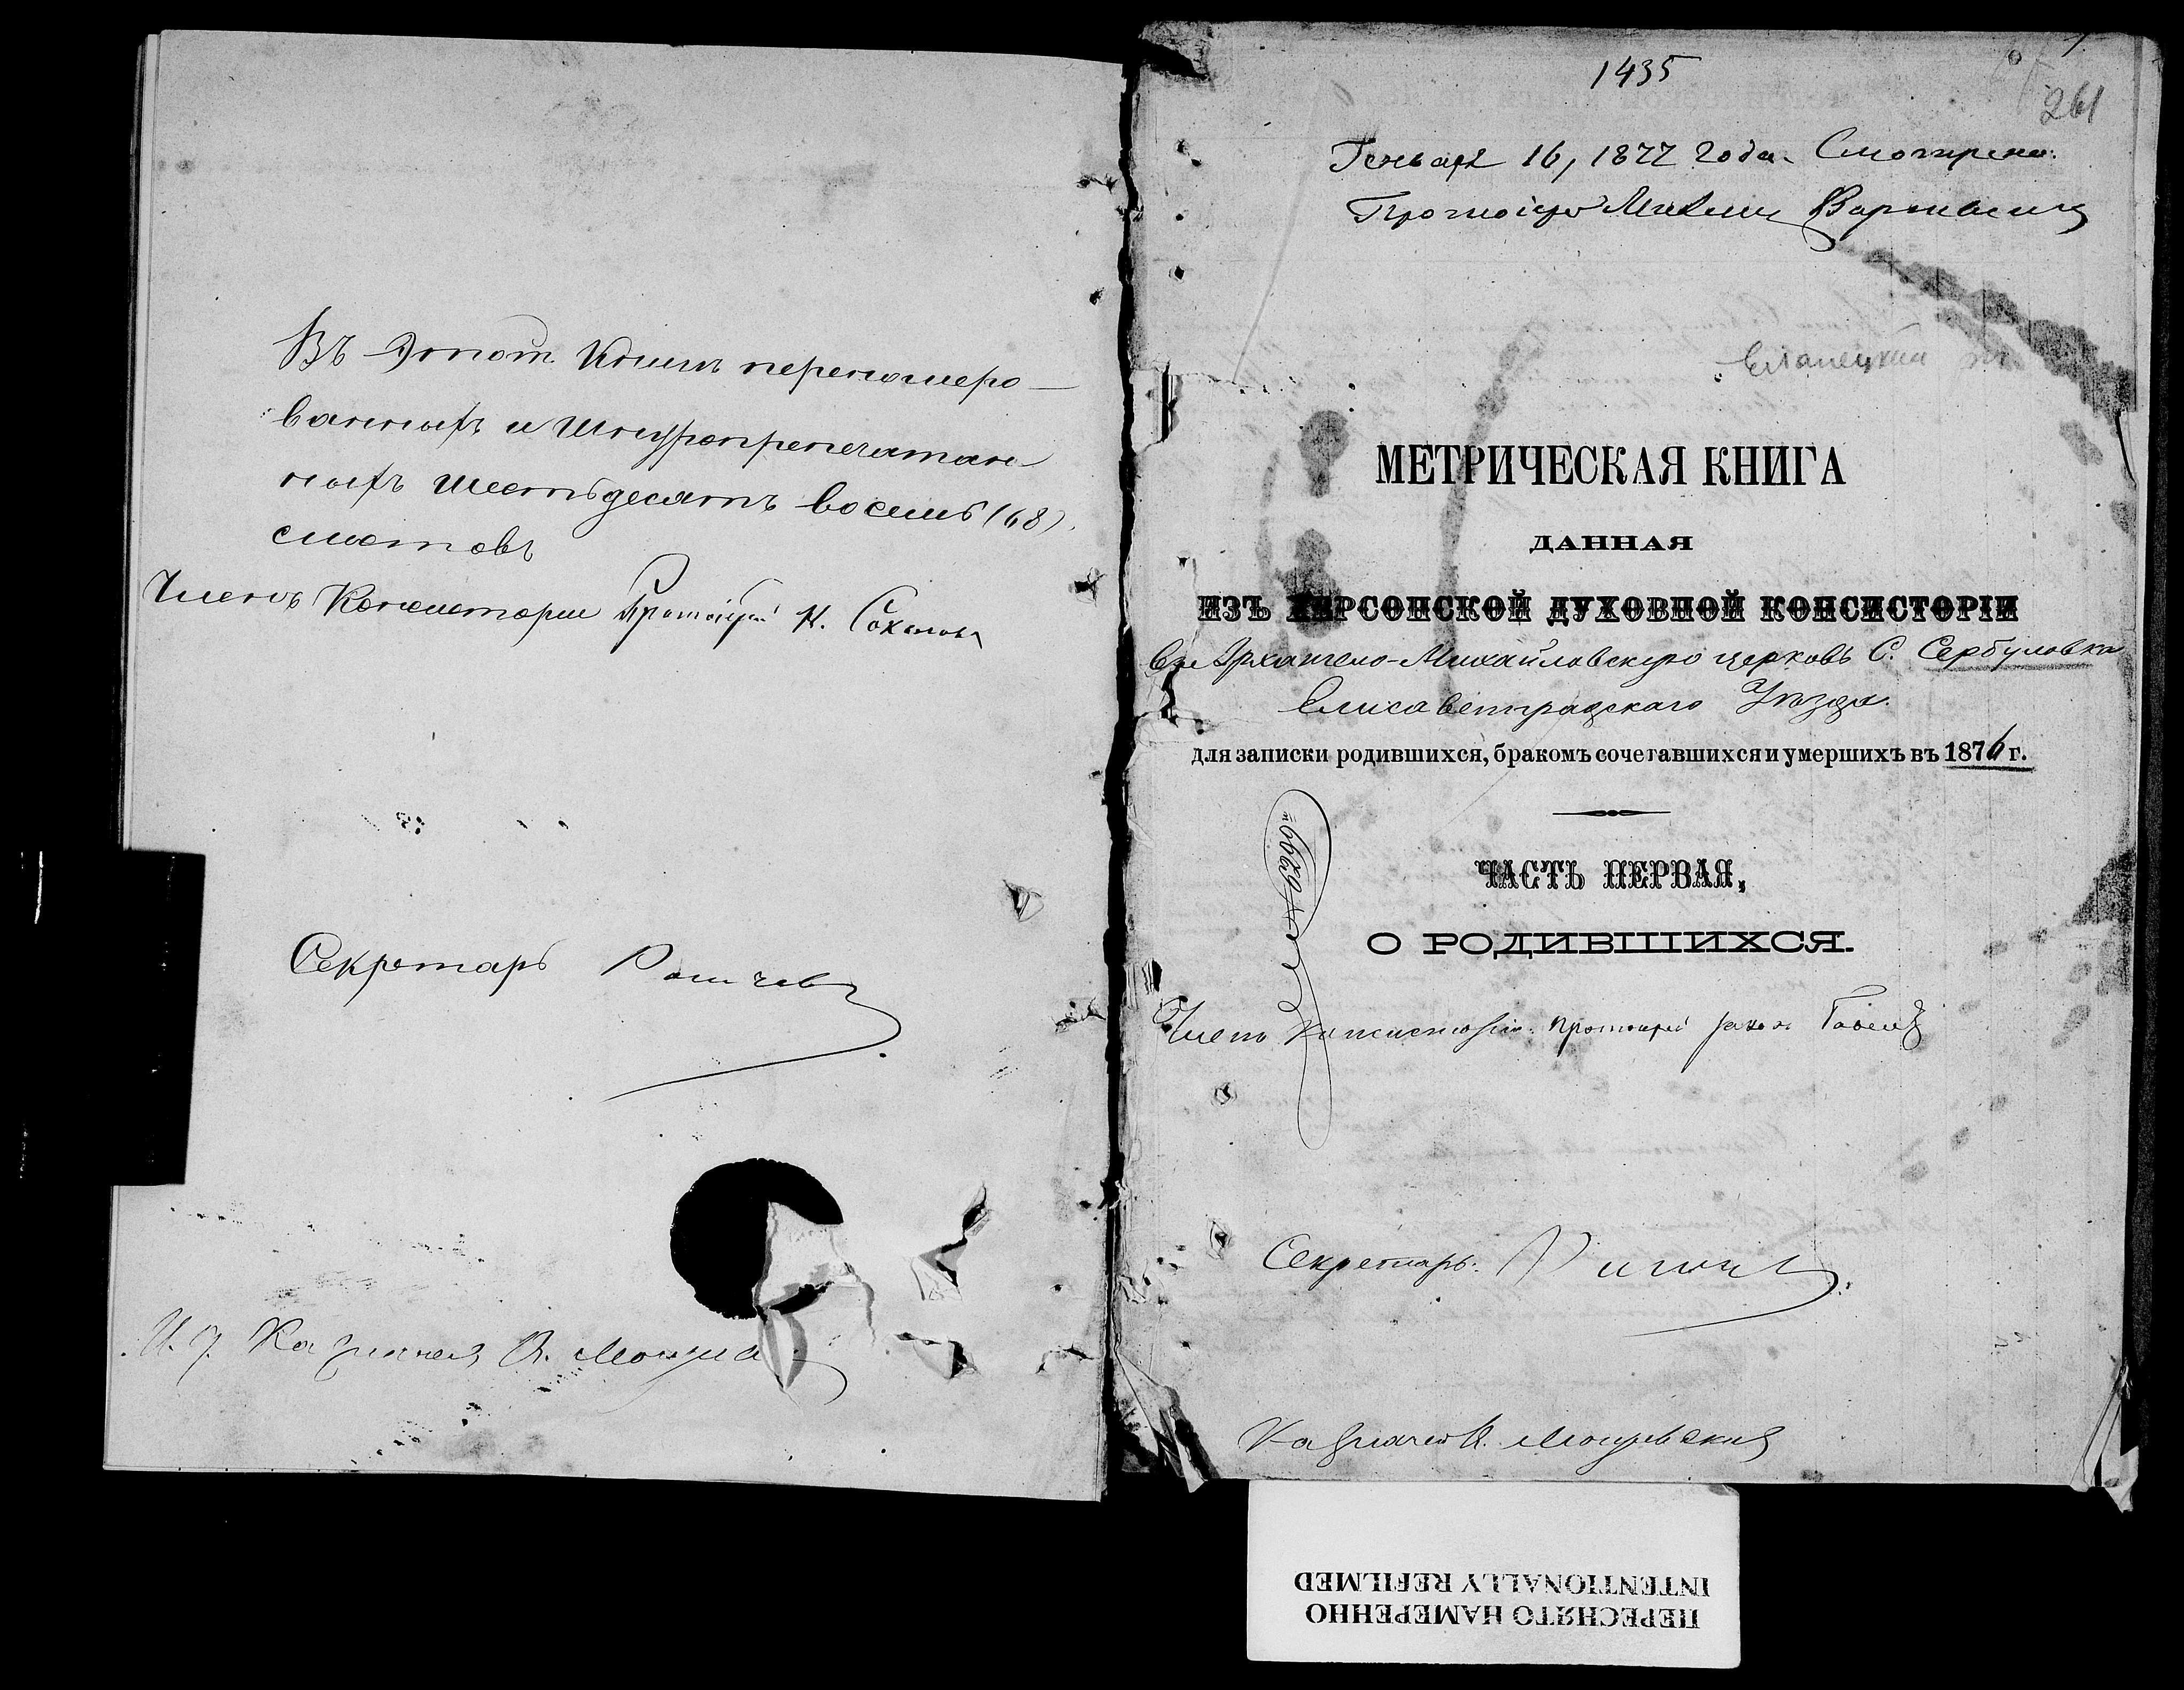 Въ этой Книгѣ перенумеро-
ванныхъ и шнуропрепечатан
ныхъ шестьдесятъ восемь (68)
листовъ
Членъ Консисторіи Протоіерей Н. Соколовъ
Секретарь
И. д. Казначея В.
1435
261
Генваря 16, 1877 года. Смотрено:
Протоіерей
МЕТРИЧЕСКАЯ КНИГА
ДАННАЯ
ИЗЪ ХЕРСОНСКОЙ ДУХОВНОЙ КОНСИСТОРІИ
въ Архангело-Михайловскую церковь С. Сербуловка
Елисаветградскаго Уѣзда.
для записки родившихся, бракомъ сочетавшихся и умершихъ въ 1876 г.
ЧАСТЬ ПЕРВАЯ,
О РОДИВШИХСЯ.
Членъ Консисторіи: Протоіерей
Секретарь:
Казначей В.
ПЕРЕСНЯТО НАМЕРЕННО
INTENTIONALLY REFILMED